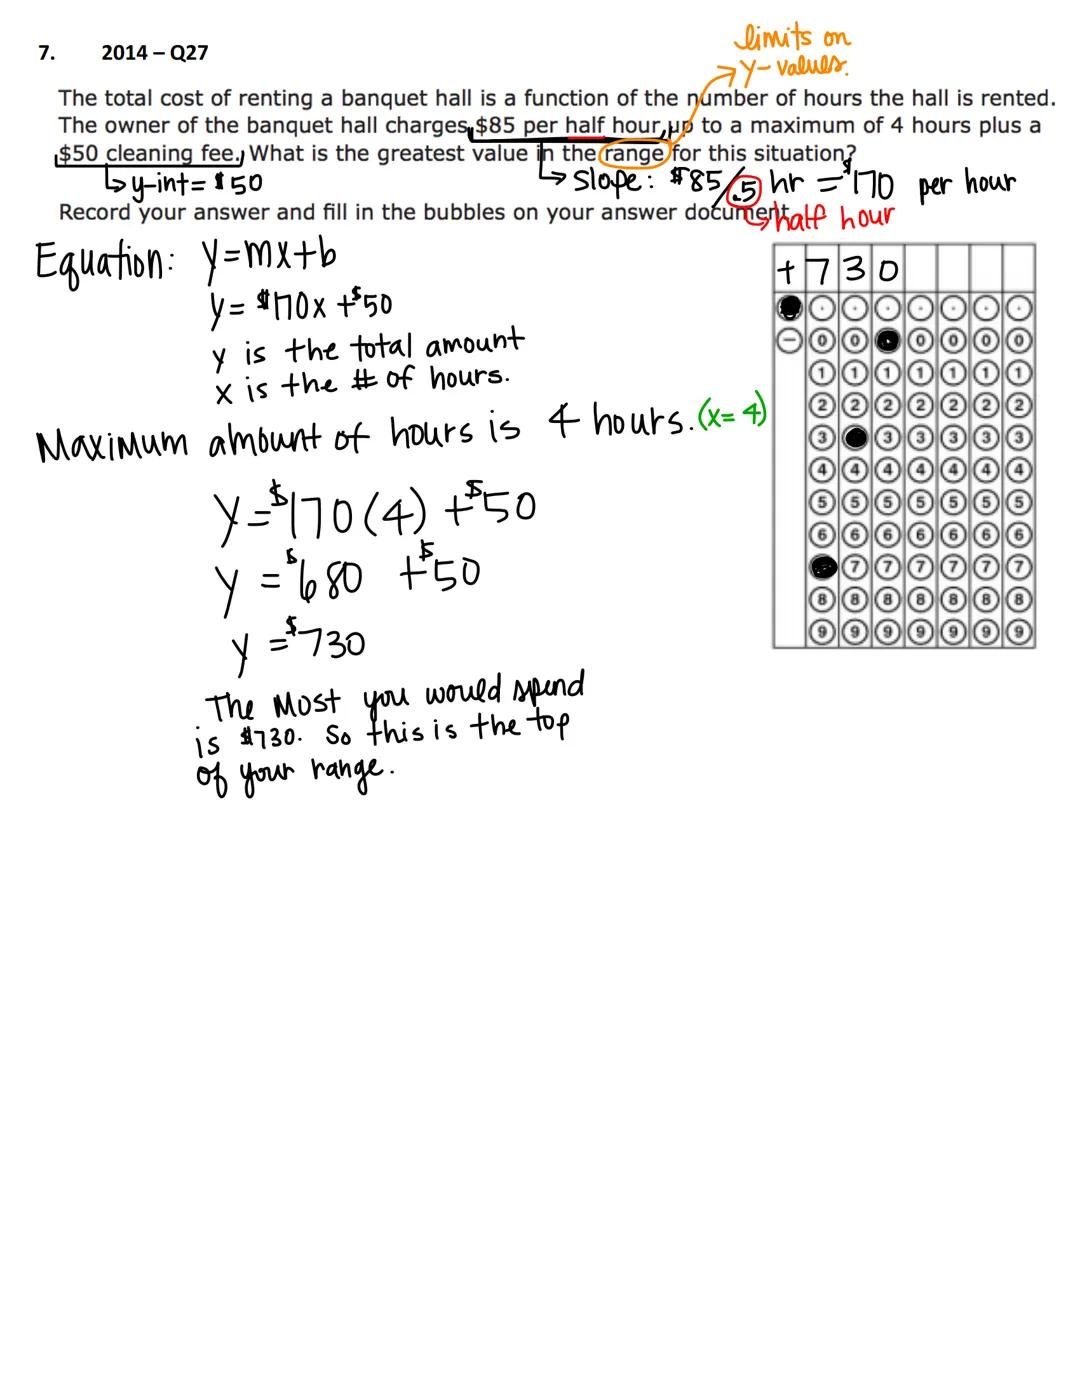 7. 2014 – Q27
limits on
y-values.
The total cost of renting a banquet hall is a function of the number of hours the hall is rented.
The owner of the banquet hall charges $85 per half hour up to a maximum of 4 hours plus a
$50 cleaning fee. What is the greatest value in the range for this situation?
y-int= $50
slope: $85/.5 hr = $170 per hour
Record your answer and fill in the bubbles on your answer document.
half hour
Equation: y=mx+b
y= $170x +$50
y is the total amount
x is the # of hours.
Maximum amount of hours is 4 hours. (x=4)
y=$170(4) +$50
y = $680 +$50
y =$730
The most you would spend
is $730. So this is the top
of your range.
+730
. . . . . . .
− 0 0 0 0 0 0
1 1 1 1 1 1 1
2 2 2 2 2 2 2
3 3 3 3 3 3
4 4 4 4 4 4 4
5 5 5 5 5 5 5
6 6 6 6 6 6 6
7 7 7 7 7 7
8 8 8 8 8 8 8
9 9 9 9 9 9 9